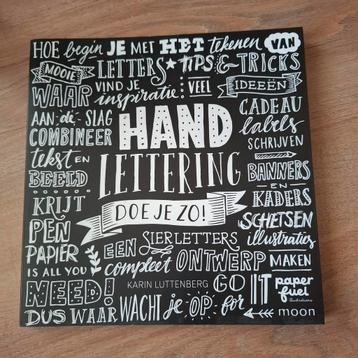 HOE begin JE MET HET tekenen VAN
MOOIE LETTERS * TIPS & TRICKS
WAAR VIND JE inspiratie VEEL IDEEËN
AAN de SLAG CADEAU labels
COMBINEER HAND SCHRIJVEN
tekst EN BEELD LETTERING BANNERS EN KADERS
KRIJT DOE JE ZO! SCHETSEN
PEN SIERLETTERS illustraties
PAPIER EEN compleet ONTWERP MAKEN
IS ALL YOU NEED! KARIN LUTTENBERG GO paper fuel
DUS WAAR WACHT je OP for IT moon